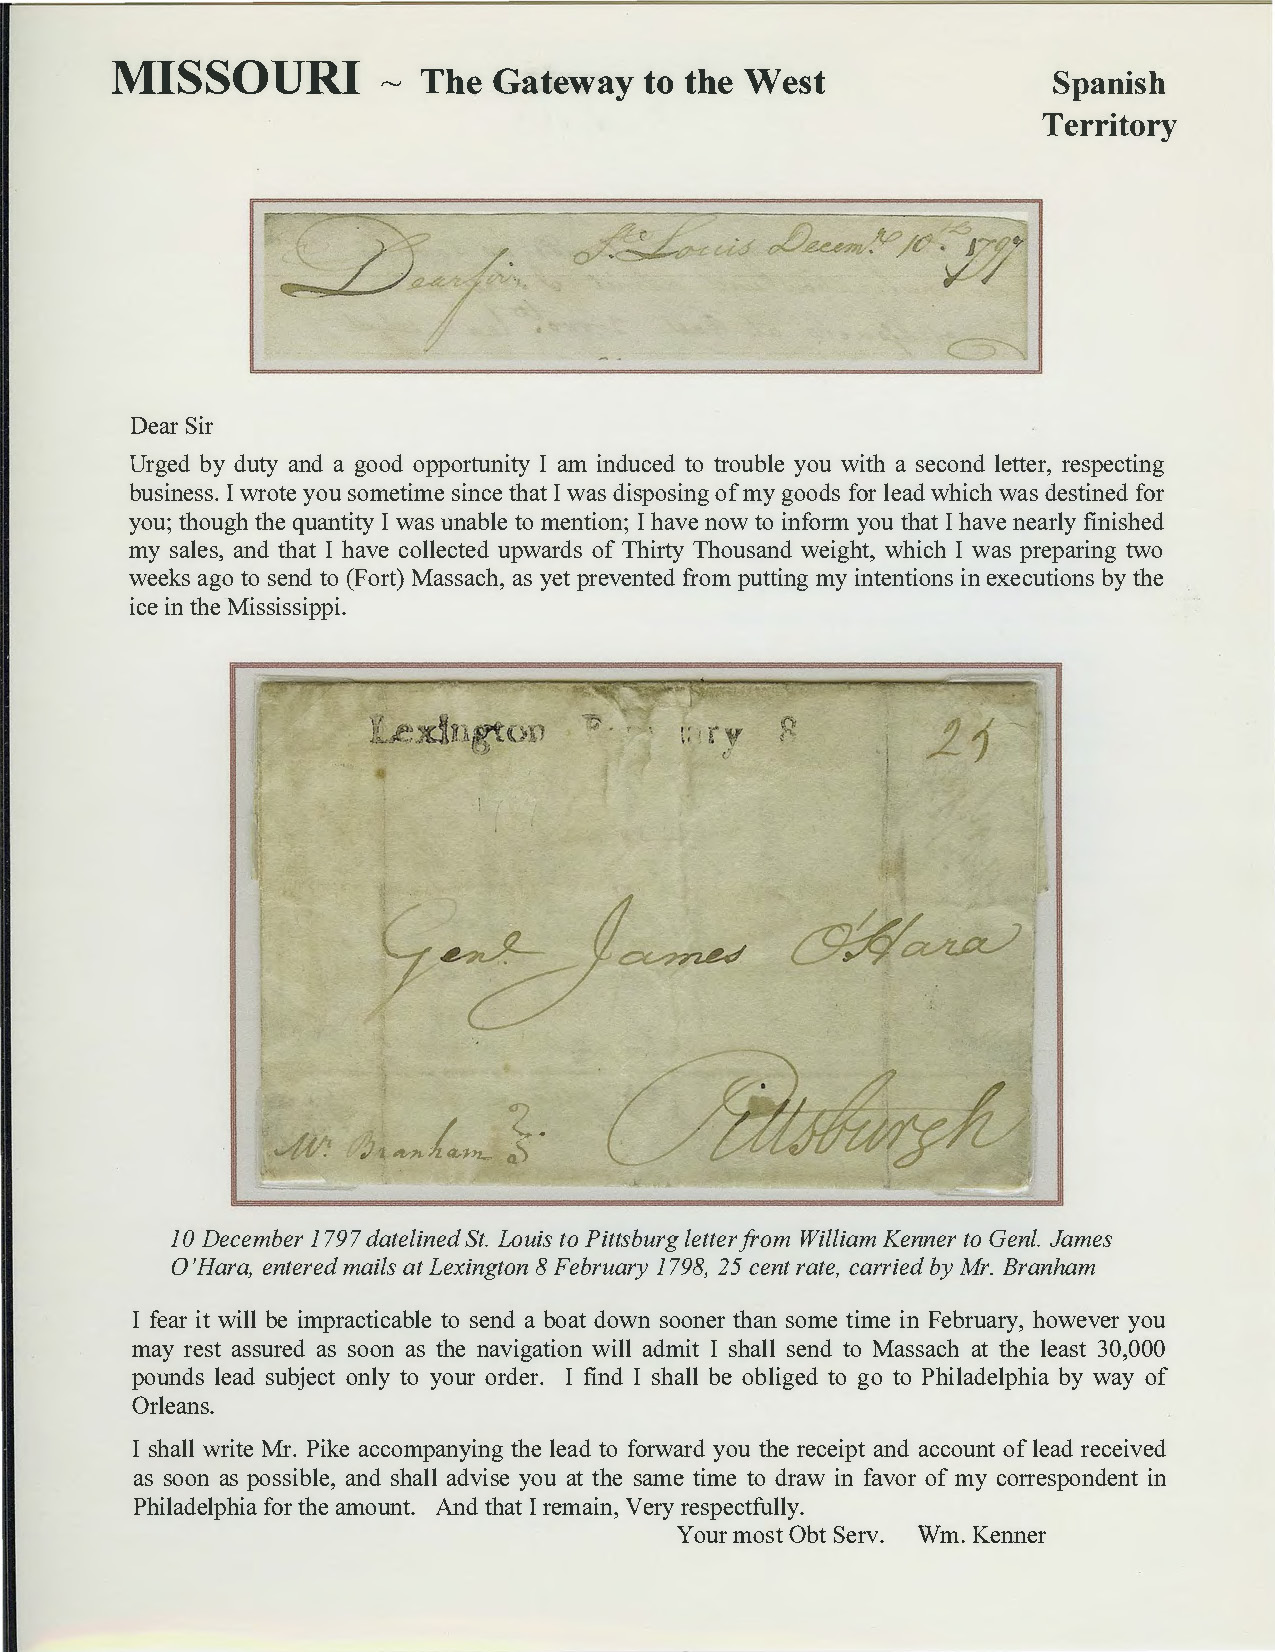 MISSOURI ~ The Gateway to the West
Spanish
Territory
Ste Louis Decemr. 10th. 1797
Dear Sir
Dear Sir
Urged by duty and a good opportunity I am induced to trouble you with a second letter, respecting
business. I wrote you sometime since that I was disposing of my goods for lead which was destined for
you; though the quantity I was unable to mention; I have now to inform you that I have nearly finished
my sales, and that I have collected upwards of Thirty Thousand weight, which I was preparing two
weeks ago to send to (Fort) Massach, as yet prevented from putting my intentions in executions by the
ice in the Mississippi.
Lexington ry 8
25
Genl. James O'Hara
Pittsburgh
Mr. Branham
10 December 1797 datelined St. Louis to Pittsburg letter from William Kenner to Genl. James
O'Hara, entered mails at Lexington 8 February 1798, 25 cent rate, carried by Mr. Branham
I fear it will be impracticable to send a boat down sooner than some time in February, however you
may rest assured as soon as the navigation will admit I shall send to Massach at the least 30,000
pounds lead subject only to your order. I find I shall be obliged to go to Philadelphia by way of
Orleans.
I shall write Mr. Pike accompanying the lead to forward you the receipt and account of lead received
as soon as possible, and shall advise you at the same time to draw in favor of my correspondent in
Philadelphia for the amount. And that I remain, Very respectfully.
Your most Obt Serv. Wm. Kenner